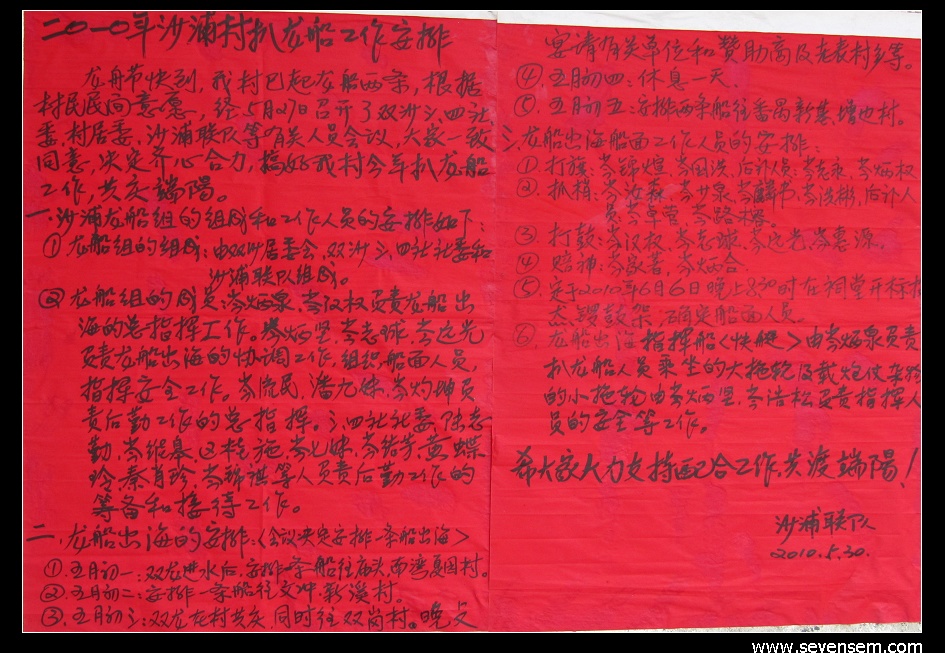 二〇一〇年沙浦村扒龙船工作安排
龙舟节快到，我村已起龙船两条，根据
村民民间意愿，经5月27日召开了双沙、三、四社
委，村居委，沙浦联队等有关人员会议，大家一致
同意，决定齐心合力，搞好我村今年扒龙船
工作，共庆端陽。
一.沙浦龙船组的组成和工作人员的安排如下：
①龙船组的组成：由双沙居委会，双沙三、四社社委和
沙浦联队组成。
②龙船组的成员：岑炳泉，岑汉权负责龙船出
海的总指挥工作。岑炳坚，岑志球，岑近光
负责龙船出海的协调工作，组织船面人员，
指挥安全工作。岑流民，潘九妹，岑灼坤负
责后勤工作的总指挥。三、四社社委，陆志
勤，岑继基，岑七妹，岑结芳，黄蝶
玲，秦肖珍，岑锦祺等人员责后勤工作的
筹备和接待工作。
二.龙船出海的安排：〈会议决定安排一条船出海〉
①.五月初一：双龙进水后，安排一条船往庙头，南湾，夏园村。
②.五月初二：安排一条船往文冲，新溪村。
③.五月初三：双龙在村共庆，同时往双岗村。晚上
宴请有关单位和赞助商及老表村乡等。
④.五月初四：休息一天。
⑤.五月初五：安排两条船往番禺新基，塘边村。
三.龙船出海船面工作人员的安排：
①.打旗：岑锦煊，岑国洪，后补人员：岑志永，岑炳权
②.抓梢：岑汝森，岑廿泉，岑麟书，岑洪彬，后补人
员：岑卓莹，岑路榕。
③.打鼓：岑汉权，岑志球，岑近光，岑惠源。
④.赔神：岑敬著，岑炳合.
⑤.定于2010年6月6日晚上8:30时在祠堂开标
锣鼓架，确定船面人员。
⑥.龙船出海指挥船〈快艇〉由岑炳泉负责
扒龙船人员乘坐的大拖轮及载炮仗杂物
的小拖轮由岑炳坚，岑浩松负责指挥人
员的安全等工作。
希大家大力支持配合工作，共渡端陽！
沙浦联队
2010.5.30.
www.sevensem.com